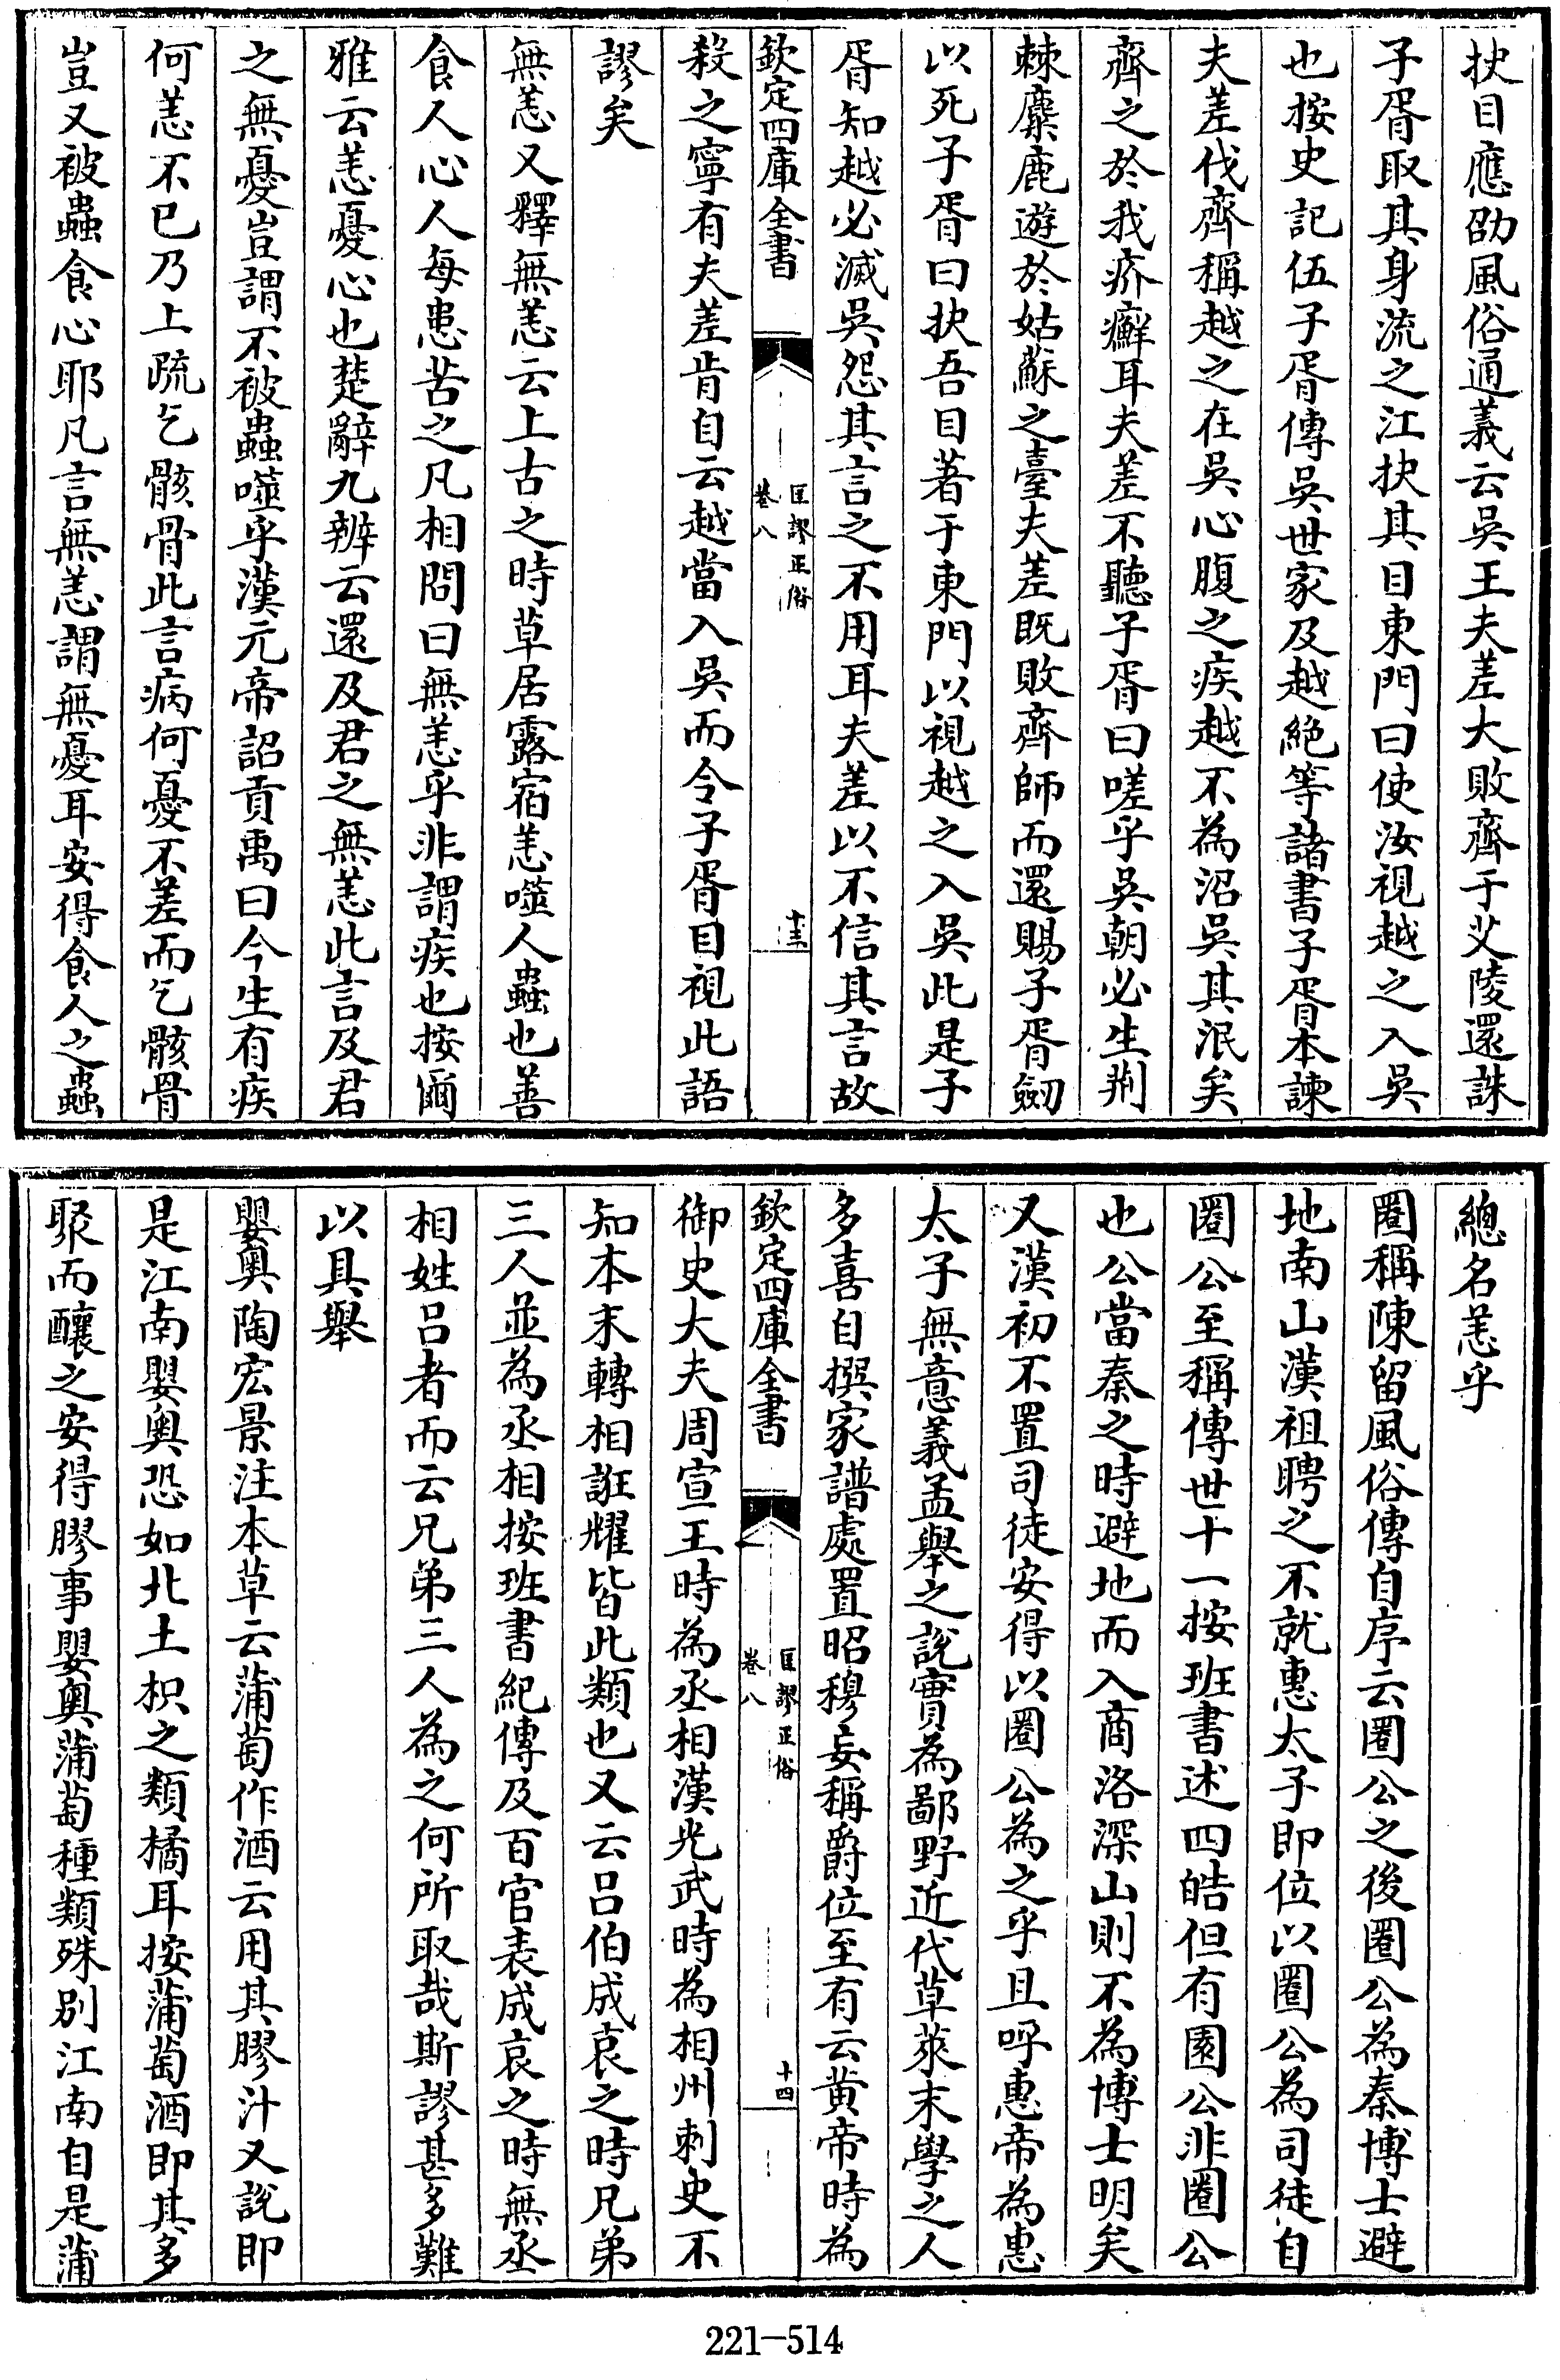 抉目應劭風俗通義云吳王夫差大敗齊于艾陵還誅
子胥取其身流之江抉其目東門曰使汝視越之入吳
也按史記伍子胥傳吳世家及越絶等諸書子胥本諫
夫差伐齊稱越之在吳心腹之疾越不為沼吳其泯矣
齊之於我疥癬耳夫差不聽子胥曰嗟乎吳朝必生荆
棘麋鹿遊於姑蘇之臺夫差既敗齊師而還賜子胥劒
以死子胥曰抉吾目著于東門以視越之入吳此是子
胥知越必滅吳怨其言之不用耳夫差以不信其言故
欽定四庫全書
匡謬正俗
卷八
十三
殺之寧有夫差肯自云越當入吳而令子胥目視此語
謬矣
無恙又釋無恙云上古之時草居露宿恙噬人蟲也善
食人心人每患苦之凡相問曰無恙乎非謂疾也按爾
雅云恙憂心也楚辭九辨云還及君之無恙此言及君
之無憂豈謂不被蟲噬乎漢元帝詔貢禹曰今生有疾
何恙不已乃上疏乞骸骨此言病何憂不差而乞骸骨
豈又被蟲食心耶凡言無恙謂無憂耳安得食人之蟲
總名恙乎
圈稱陳留風俗傳自序云圈公之後圈公為秦博士避
地南山漢祖聘之不就惠太子即位以圈公為司徒自
圈公至稱傳世十一按班書述四皓但有園公非圈公
也公當秦之時避地而入商洛深山則不為博士明矣
又漢初不置司徒安得以圈公為之乎且呼惠帝為惠
太子無意義孟舉之說實為鄙野近代草萊末學之人
多喜自撰家譜處置昭穆妄稱爵位至有云黄帝時為
欽定四庫全書
匡謬正俗
卷八
十四
御史大夫周宣王時為丞相漢光武時為相州刺史不
知本末轉相誑耀皆此類也又云吕伯成哀之時兄弟
三人並為丞相按班書紀傳及百官表成哀之時無丞
相姓吕者而云兄弟三人為之何所取哉斯謬甚多難
以具舉
嬰奥陶宏景注本草云蒲萄作酒云用其膠汁又說即
是江南嬰奥恐如北土枳之類橘耳按蒲萄酒即其多
聚而釀之安得膠事嬰奥蒲萄種類殊别江南自是蒲
221-514